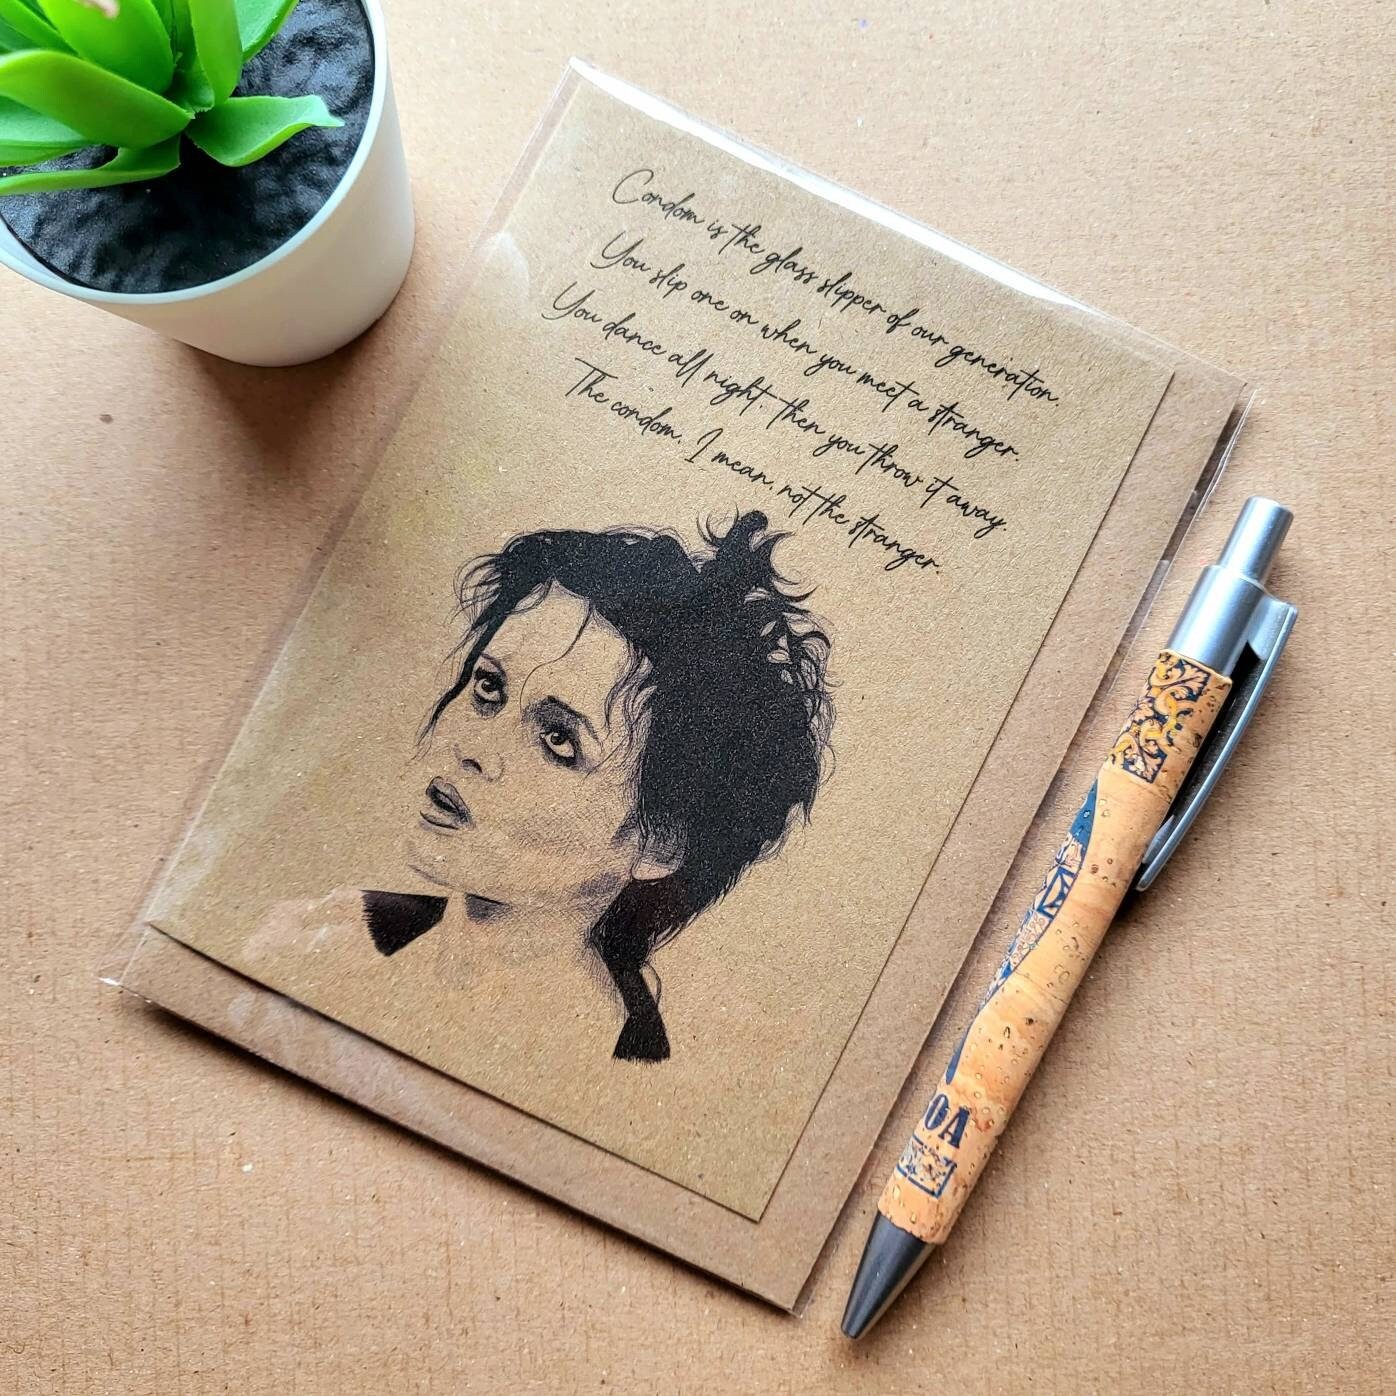 Condom is the glass slipper of our generation.
You slip one on when you meet a stranger.
You dance all night, then you throw it away.
The condom, I mean, not the stranger.
OA